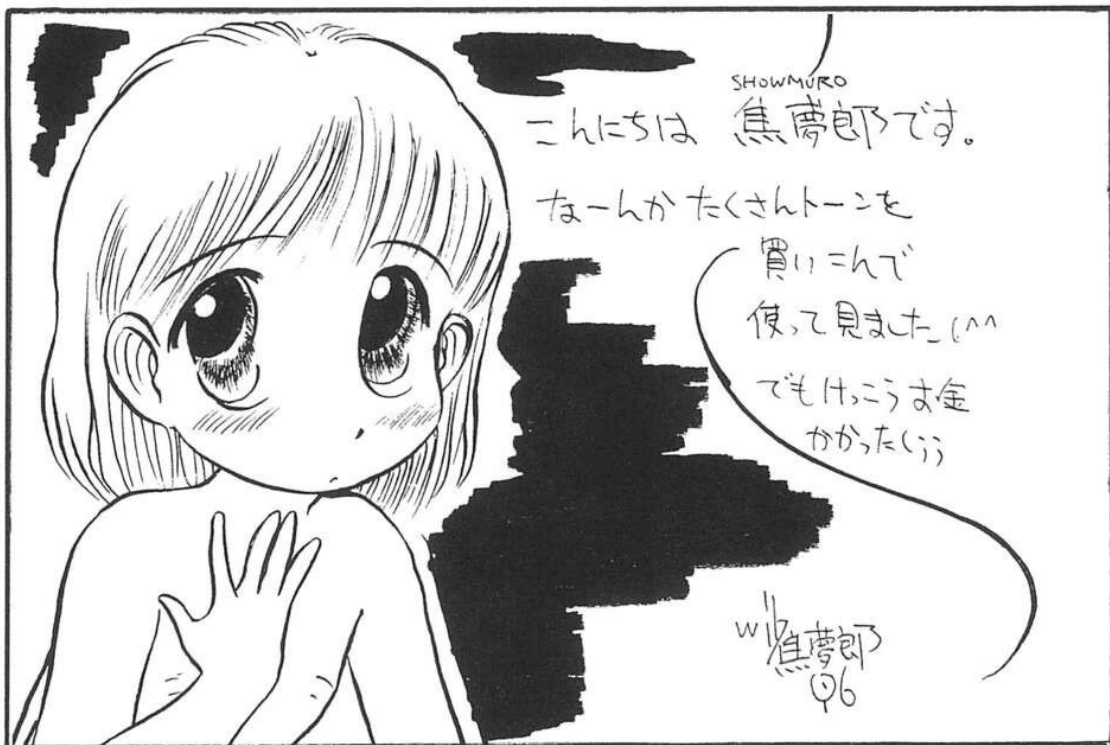 SHOWMURO
こんにちは 焦夢郎です。
なーんか たくさんトーンを
買いこんで
使って見ました(^^
でもけっこうお金
かかった(;;
焦夢郎
96